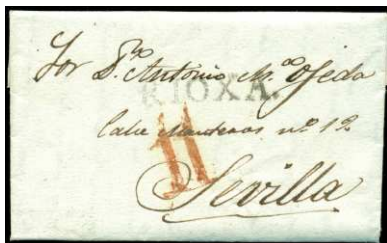 Sor Dn. Antonio Ma. Ojeda
RIOXA.
Calle nº 12
11
Sevilla